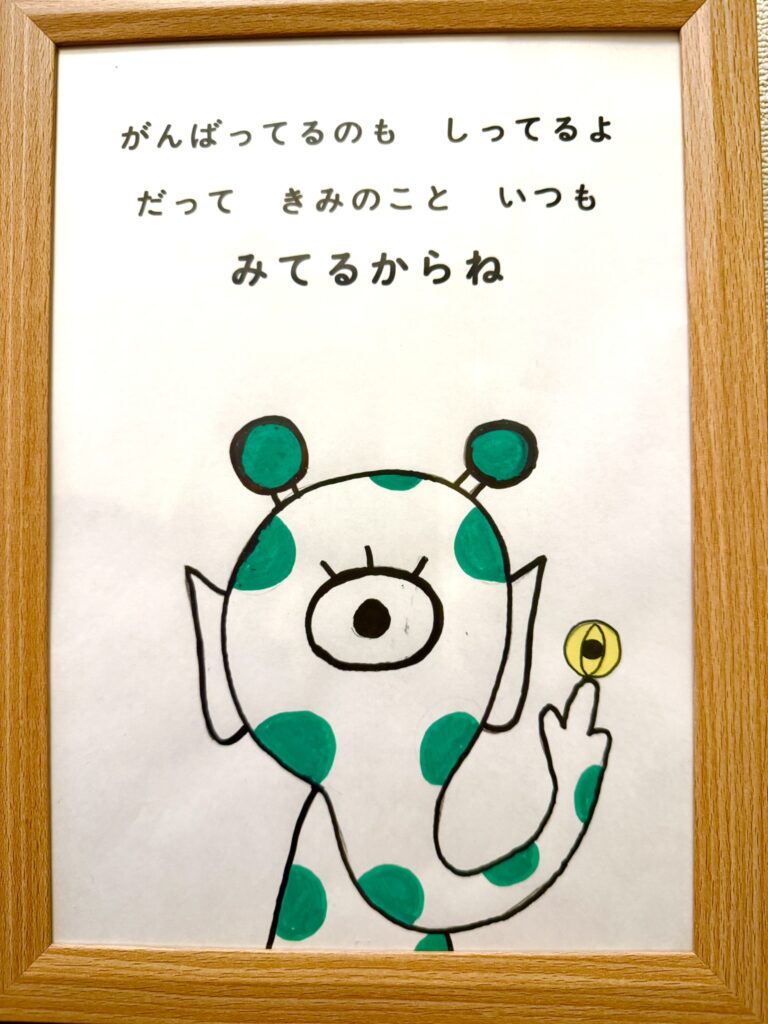 がんばってるのも　しってるよ
だって　きみのこと　いつも
みてるからね